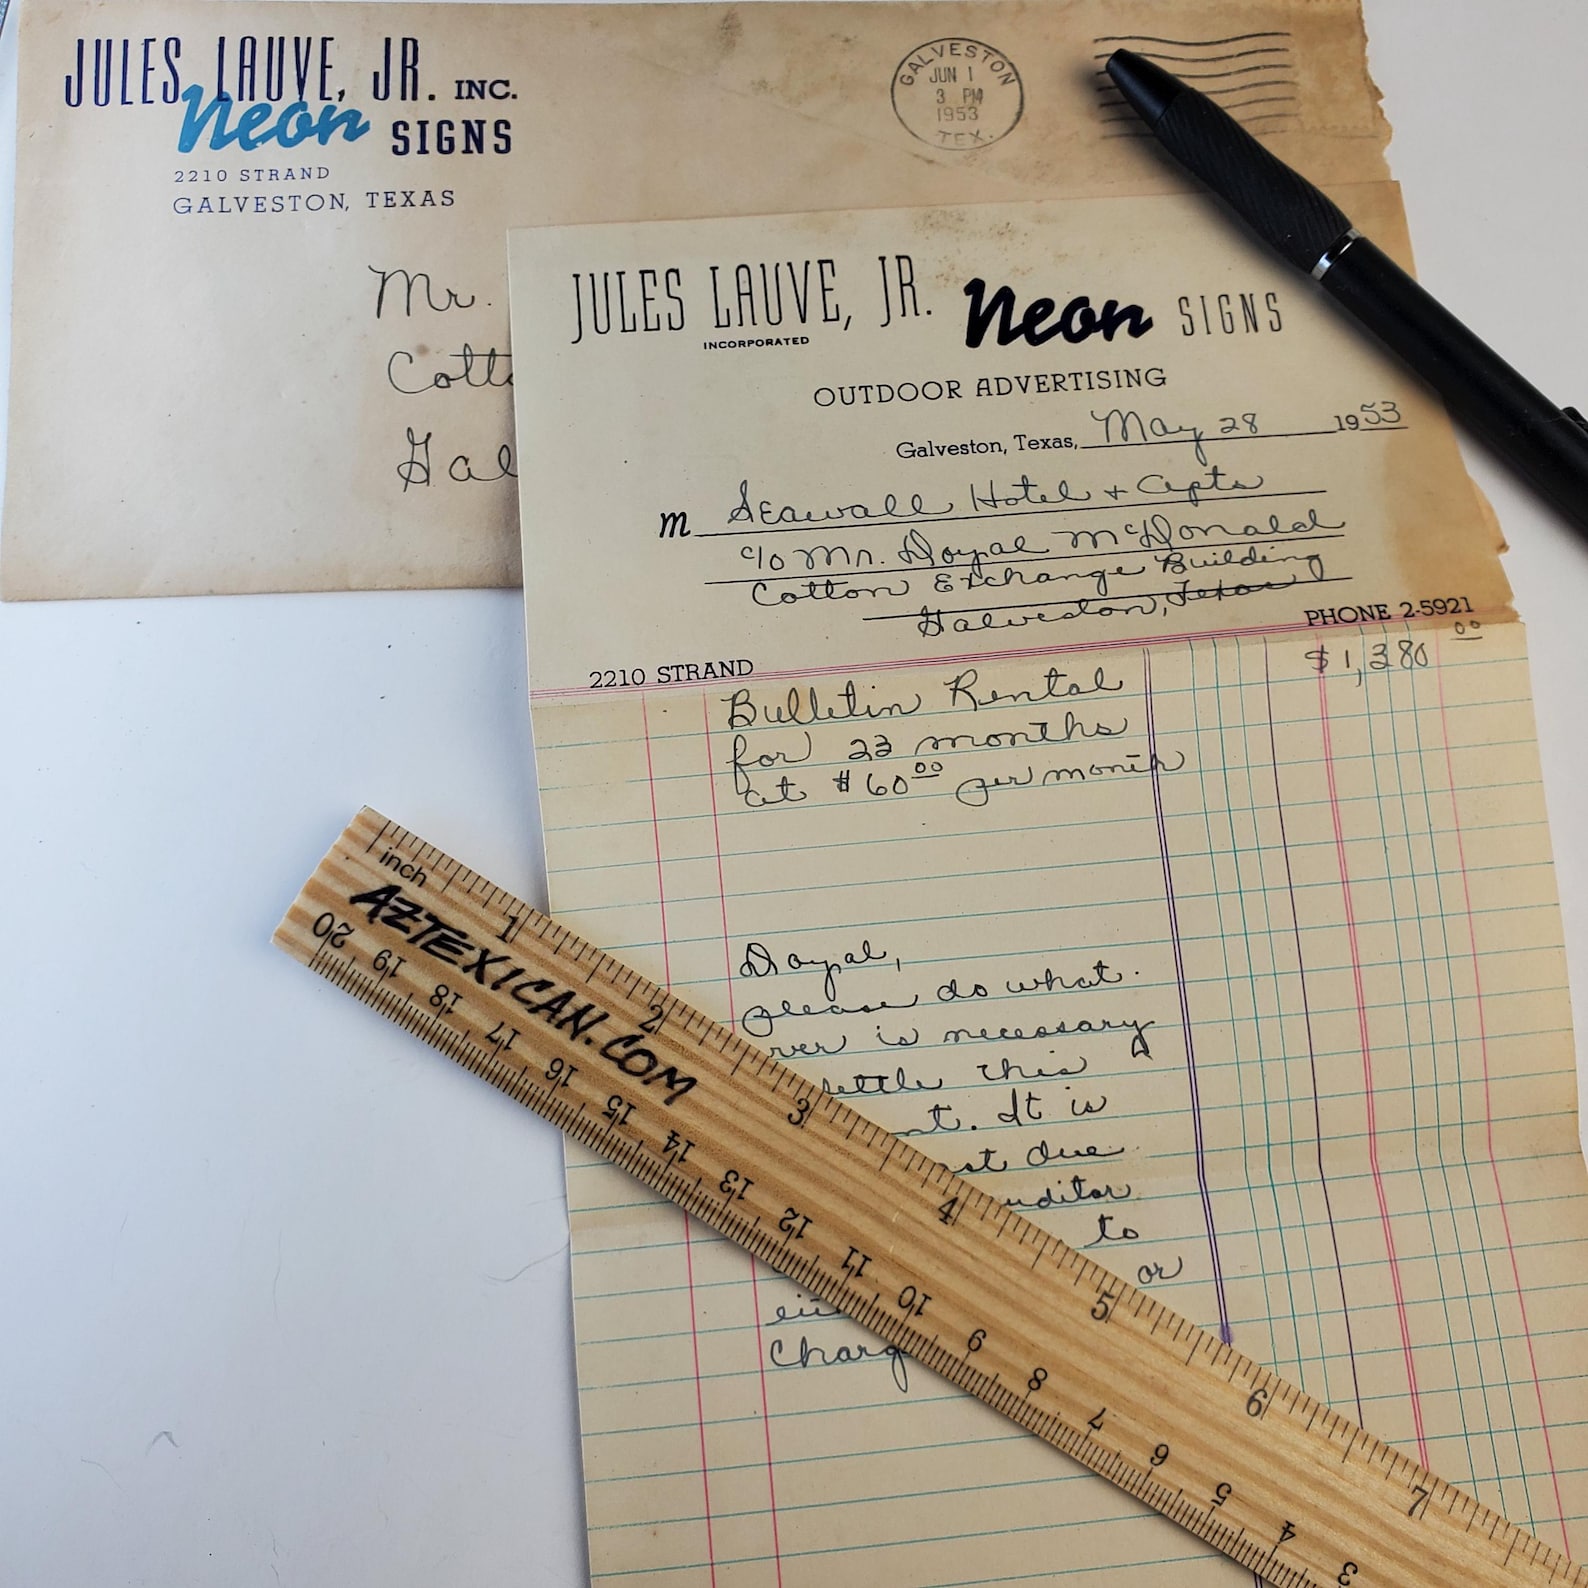 JULES LAUVE, JR. INC.
Neon SIGNS
2210 STRAND
GALVESTON, TEXAS
GALVESTON
JUN 1
3 PM
1953
TEX.
Mr.
Cotto
Gal
JULES LAUVE, JR. Neon SIGNS
INCORPORATED
OUTDOOR ADVERTISING
Galveston, Texas, May 28 1953
M Seawall Hotel + Apts
c/o Mr. Doyal McDonald
Cotton Exchange Building
Galveston, Texas
2210 STRAND PHONE 2-5921
Bulletin Rental $1,380 00
for 23 months
at $60 00 per month
Doyal,
please do what
ver is necessary
settle this
nt. It is
st due
uditor
to
or
Charg
inch 1 2 3 4 5 6 7
AZTEXICAN.COM
20 19 18 17 16 15 14 13 12 11 10 9 8 7 6 5 4 3